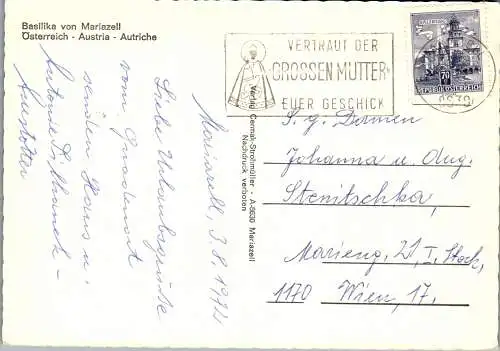 Basilika von Mariazell
Österreich - Austria - Autriche
Mariazell, 3.8.1974
Liebe Urlaubsgrüße
vom Gnadenort
senden Hans u.
Verlag Cermak-Strohmüller - A-8630 Mariazell
Nachdruck verboten
VERTRAUT DER
GROSSEN MUTTER
EUER GESCHICK
70
REPUBLIK ÖSTERREICH
S. g. Damen
Johanna u. Aug.
Stenitschka,
Marieng. 21, I. Stock,
1170 Wien, 17.